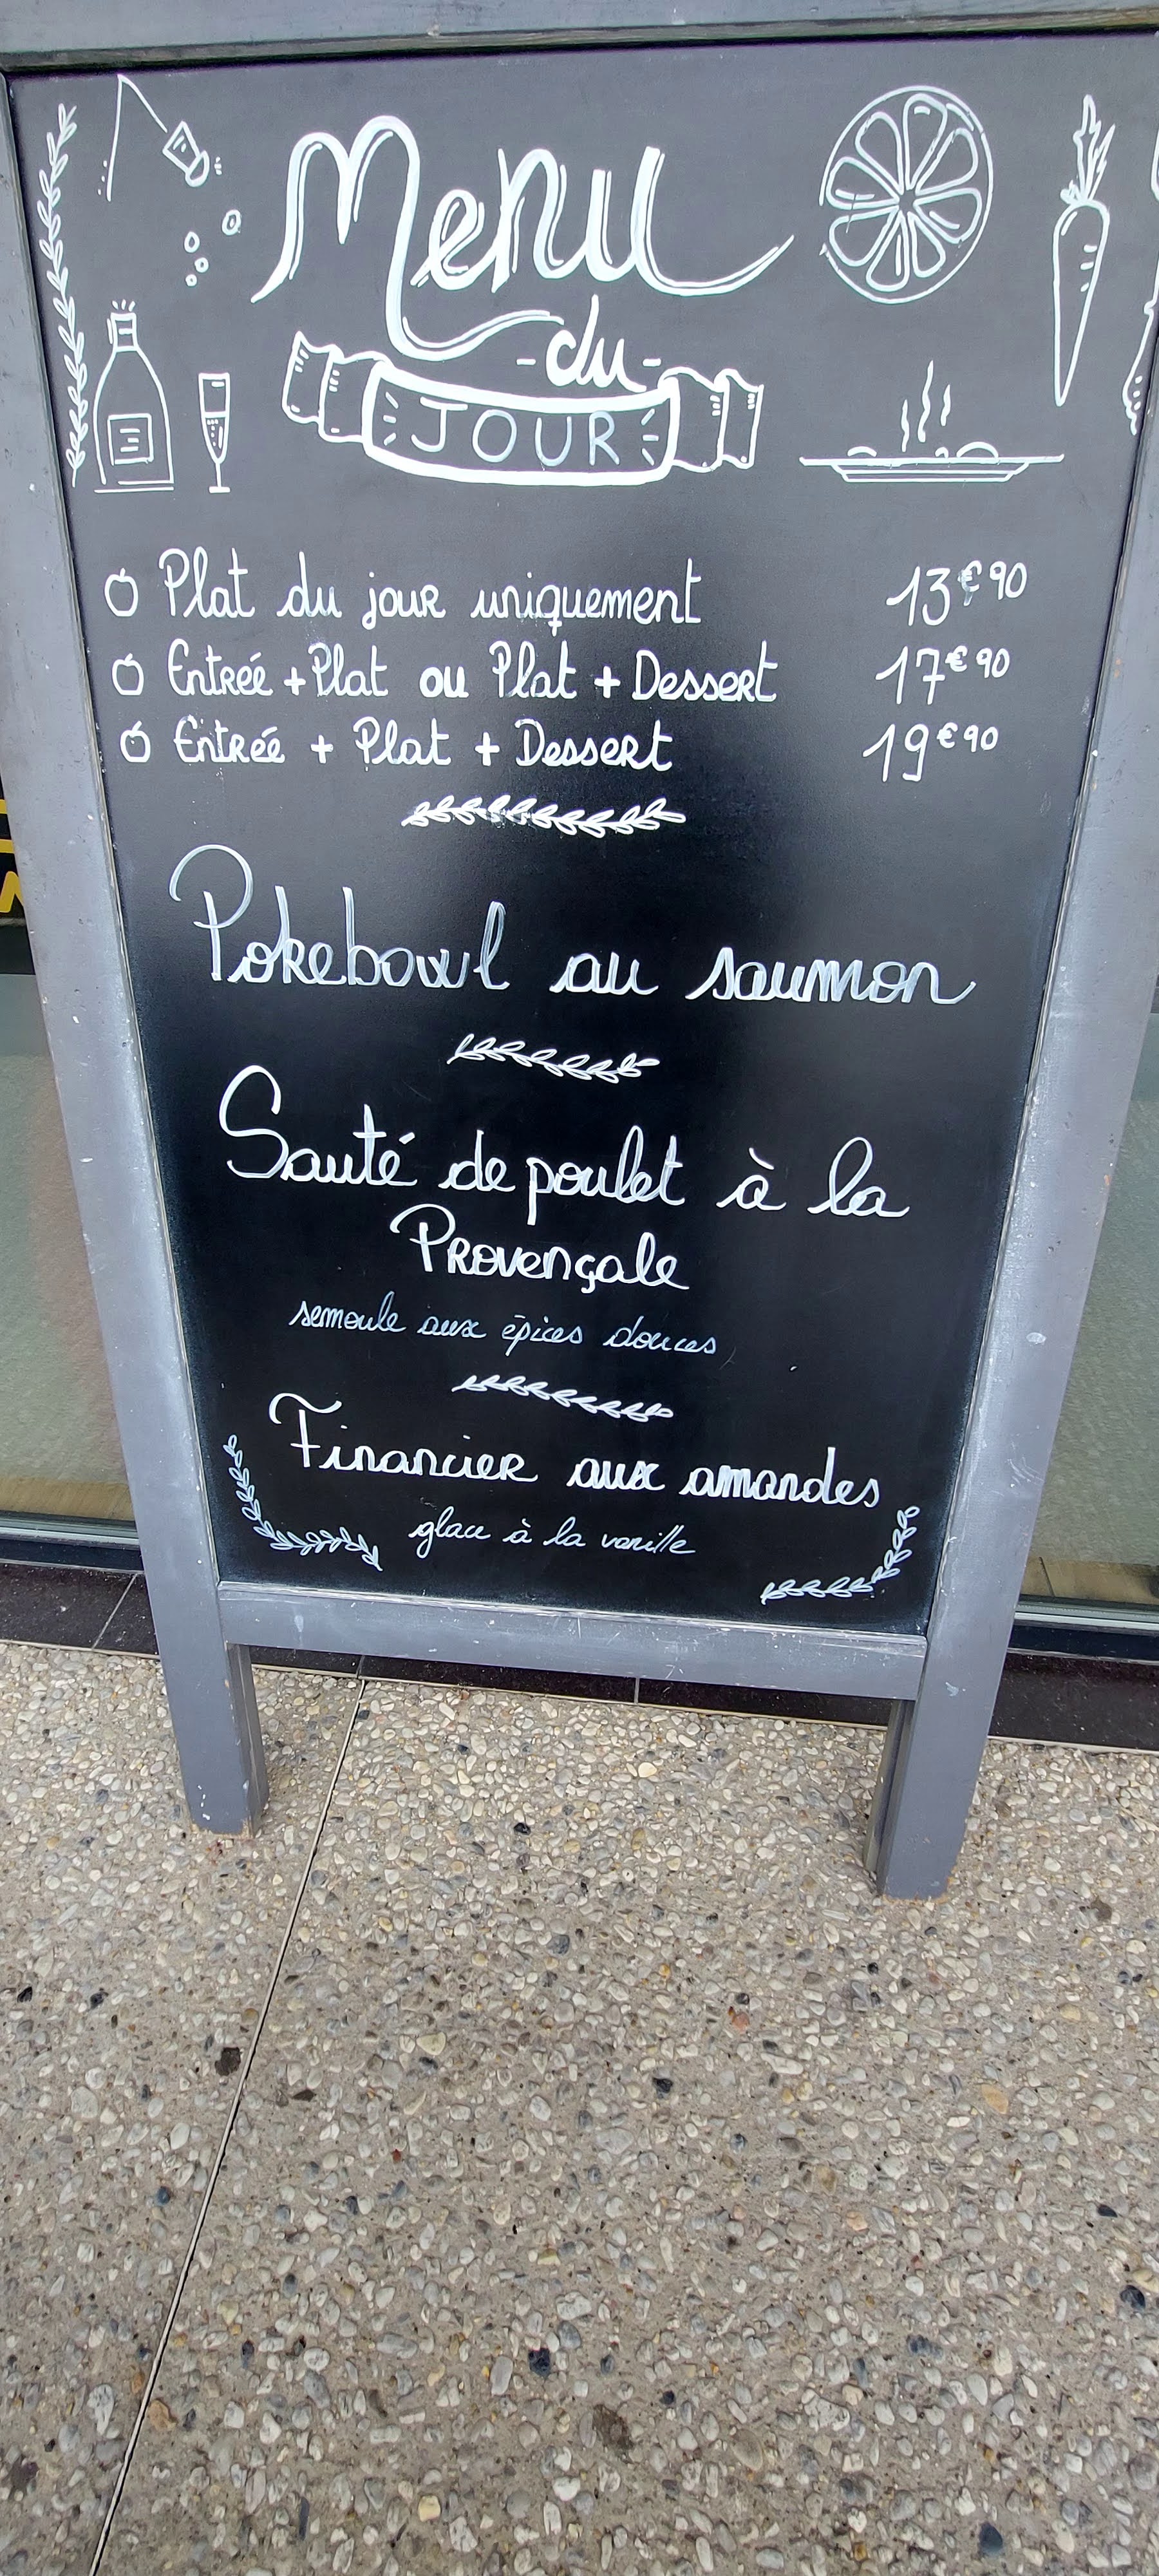 Menu
-du-
JOUR
Plat du jour uniquement 13€90
Entrée + Plat ou Plat + Dessert 17€90
Entrée + Plat + Dessert 19€90
Pokebowl au saumon
Sauté de poulet à la
Provençale
semoule aux épices douces
Financier aux amandes
glace à la vanille